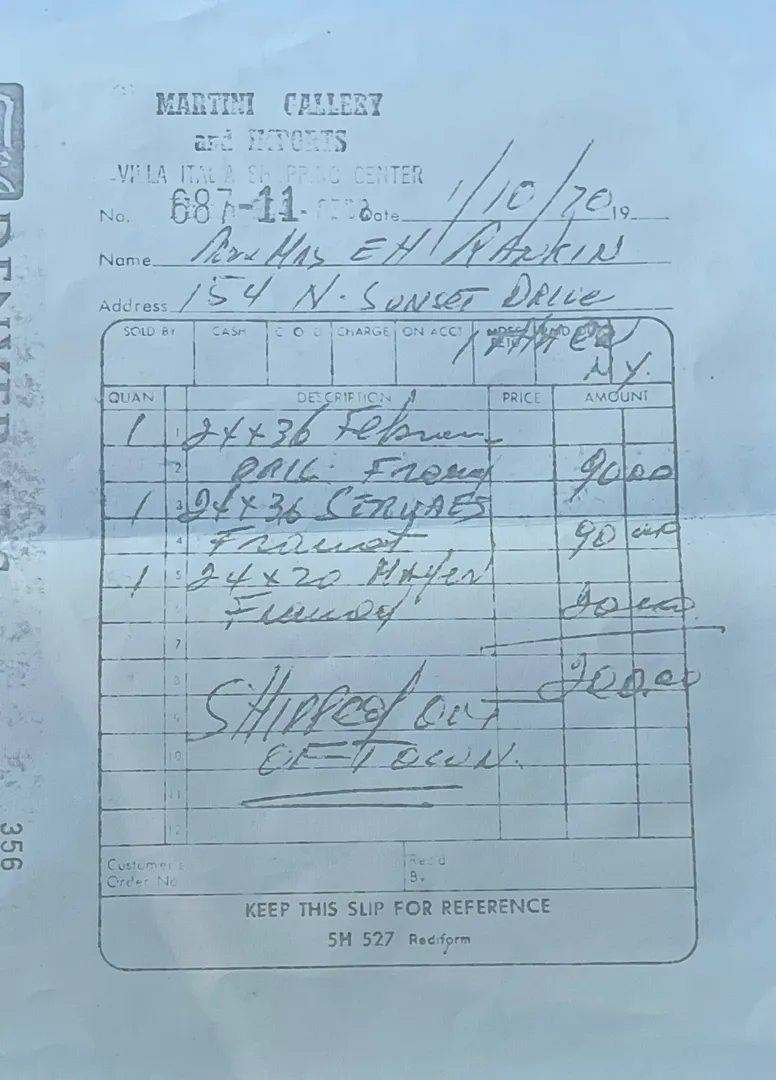 MARTINI GALLERY
and IMPORTS
VILLA ITALIA SHOPPING CENTER
No. 687-11- Date 1/10/70 19
Name Mr & Mrs EH RANKIN
Address 154 N. SUNSET DRIVE
SOLD BY CASH C O D CHARGE ON ACCT MDSE RETD PAID OUT
ITHACA
N.Y.
QUAN DESCRIPTION PRICE AMOUNT
1 1 24x36
2 90.00
1 3 24x36 SERVAES
4 90
1 5 24x20
6 20
7
8 200.00
SHIPPED OUT
9
10 OF TOWN.
11
12
Customer's
Order No.
Rec'd
By
KEEP THIS SLIP FOR REFERENCE
5H 527 Rediform
356